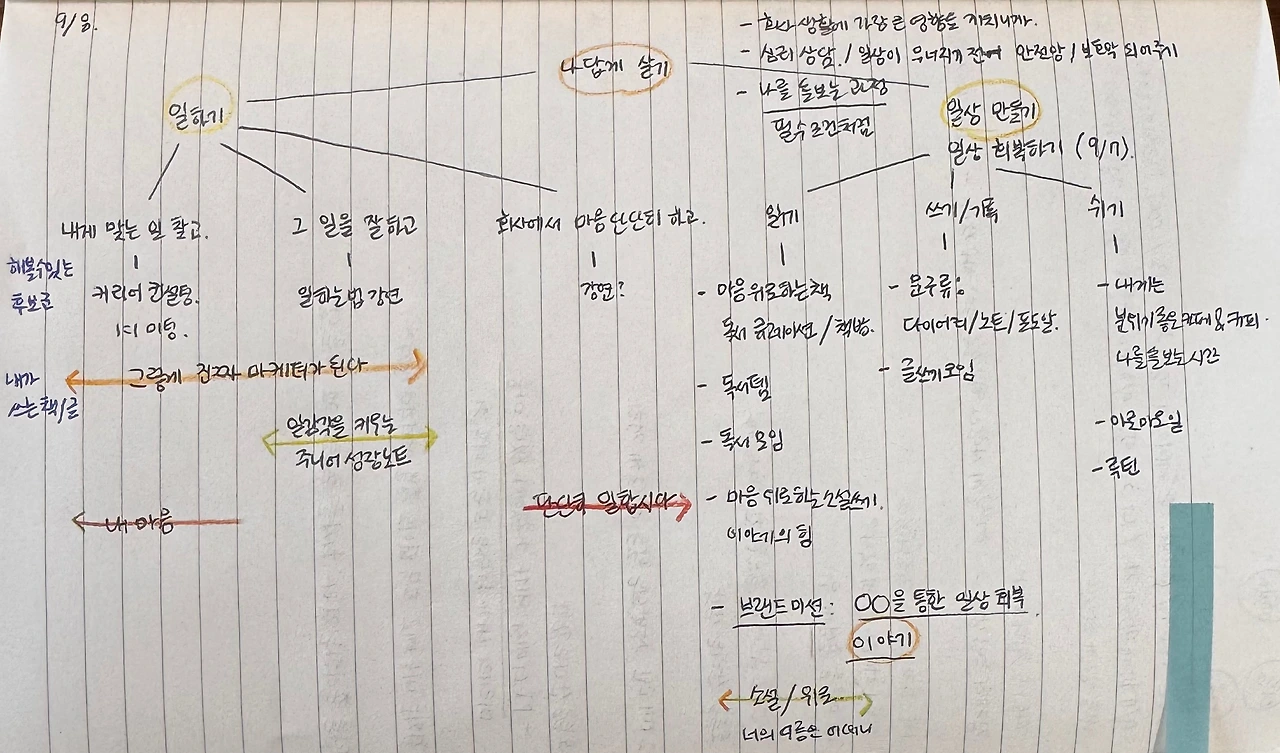 9/8.
- 회사 생활에 가장 큰 영향을 끼치니까.
- 심리 상담 / 일상이 무너지기 전에 안전망 / 보호막 되어주기
- 나를 돌보는 과정
필수조건처럼
나답게 살기
일하기
일상 만들기
일상 회복하기 (9/17).
내게 맞는 일 찾고.
그 일을 잘하고
회사에서 마음 단단히 하고.
읽기
쓰기/기록
쉬기
해볼수있는
후보군
커리어 컨설팅.
1:1 미팅.
일하는법 강연
강연?
- 마음위로하는책
독서 큐레이션 / 책방.
- 독서템
- 독서모임
- 마음위로하는소설쓰기.
이야기의 힘
- 문구류:
다이어리/노트/포도알.
- 글쓰기모임
- 내게는
분위기좋은카페&커피.
나를돌보는시간
- 아로마오일
- 루틴
내가
쓰는책/글
그렇게 진짜 마케터가 된다
일감각을 키우는
주니어 성장노트
내 마음
단단히 일합시다
- 브랜드미션: ○○을 통한 일상 회복
이야기
소설 / 위로
너의